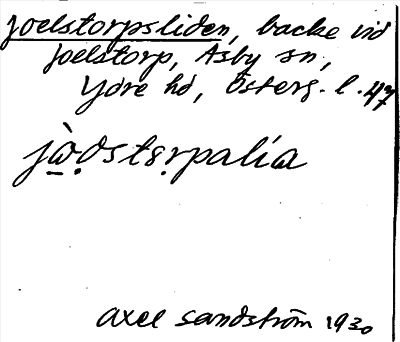 Joelstorpsliden, backe vid
Joelstorp, Asby sn,
Ydre hd, Österg. l. 47
jὼ̱.ʊstɛrpalía
Axel Sandström 1930